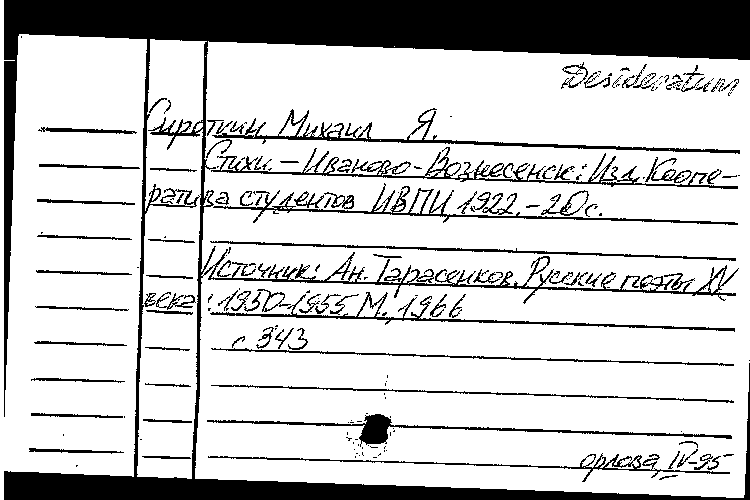 Desideratum
Сироткин, Михаил Я.
Стихи. – Иваново-Вознесенск: Изд. Коопе-
ратива студентов ИВПИ, 1922. – 20 с.
Источник: Ан. Тарасенков. Русские поэты XX
века: 1950-1955. М., 1966
с 343
орлова, IV-95